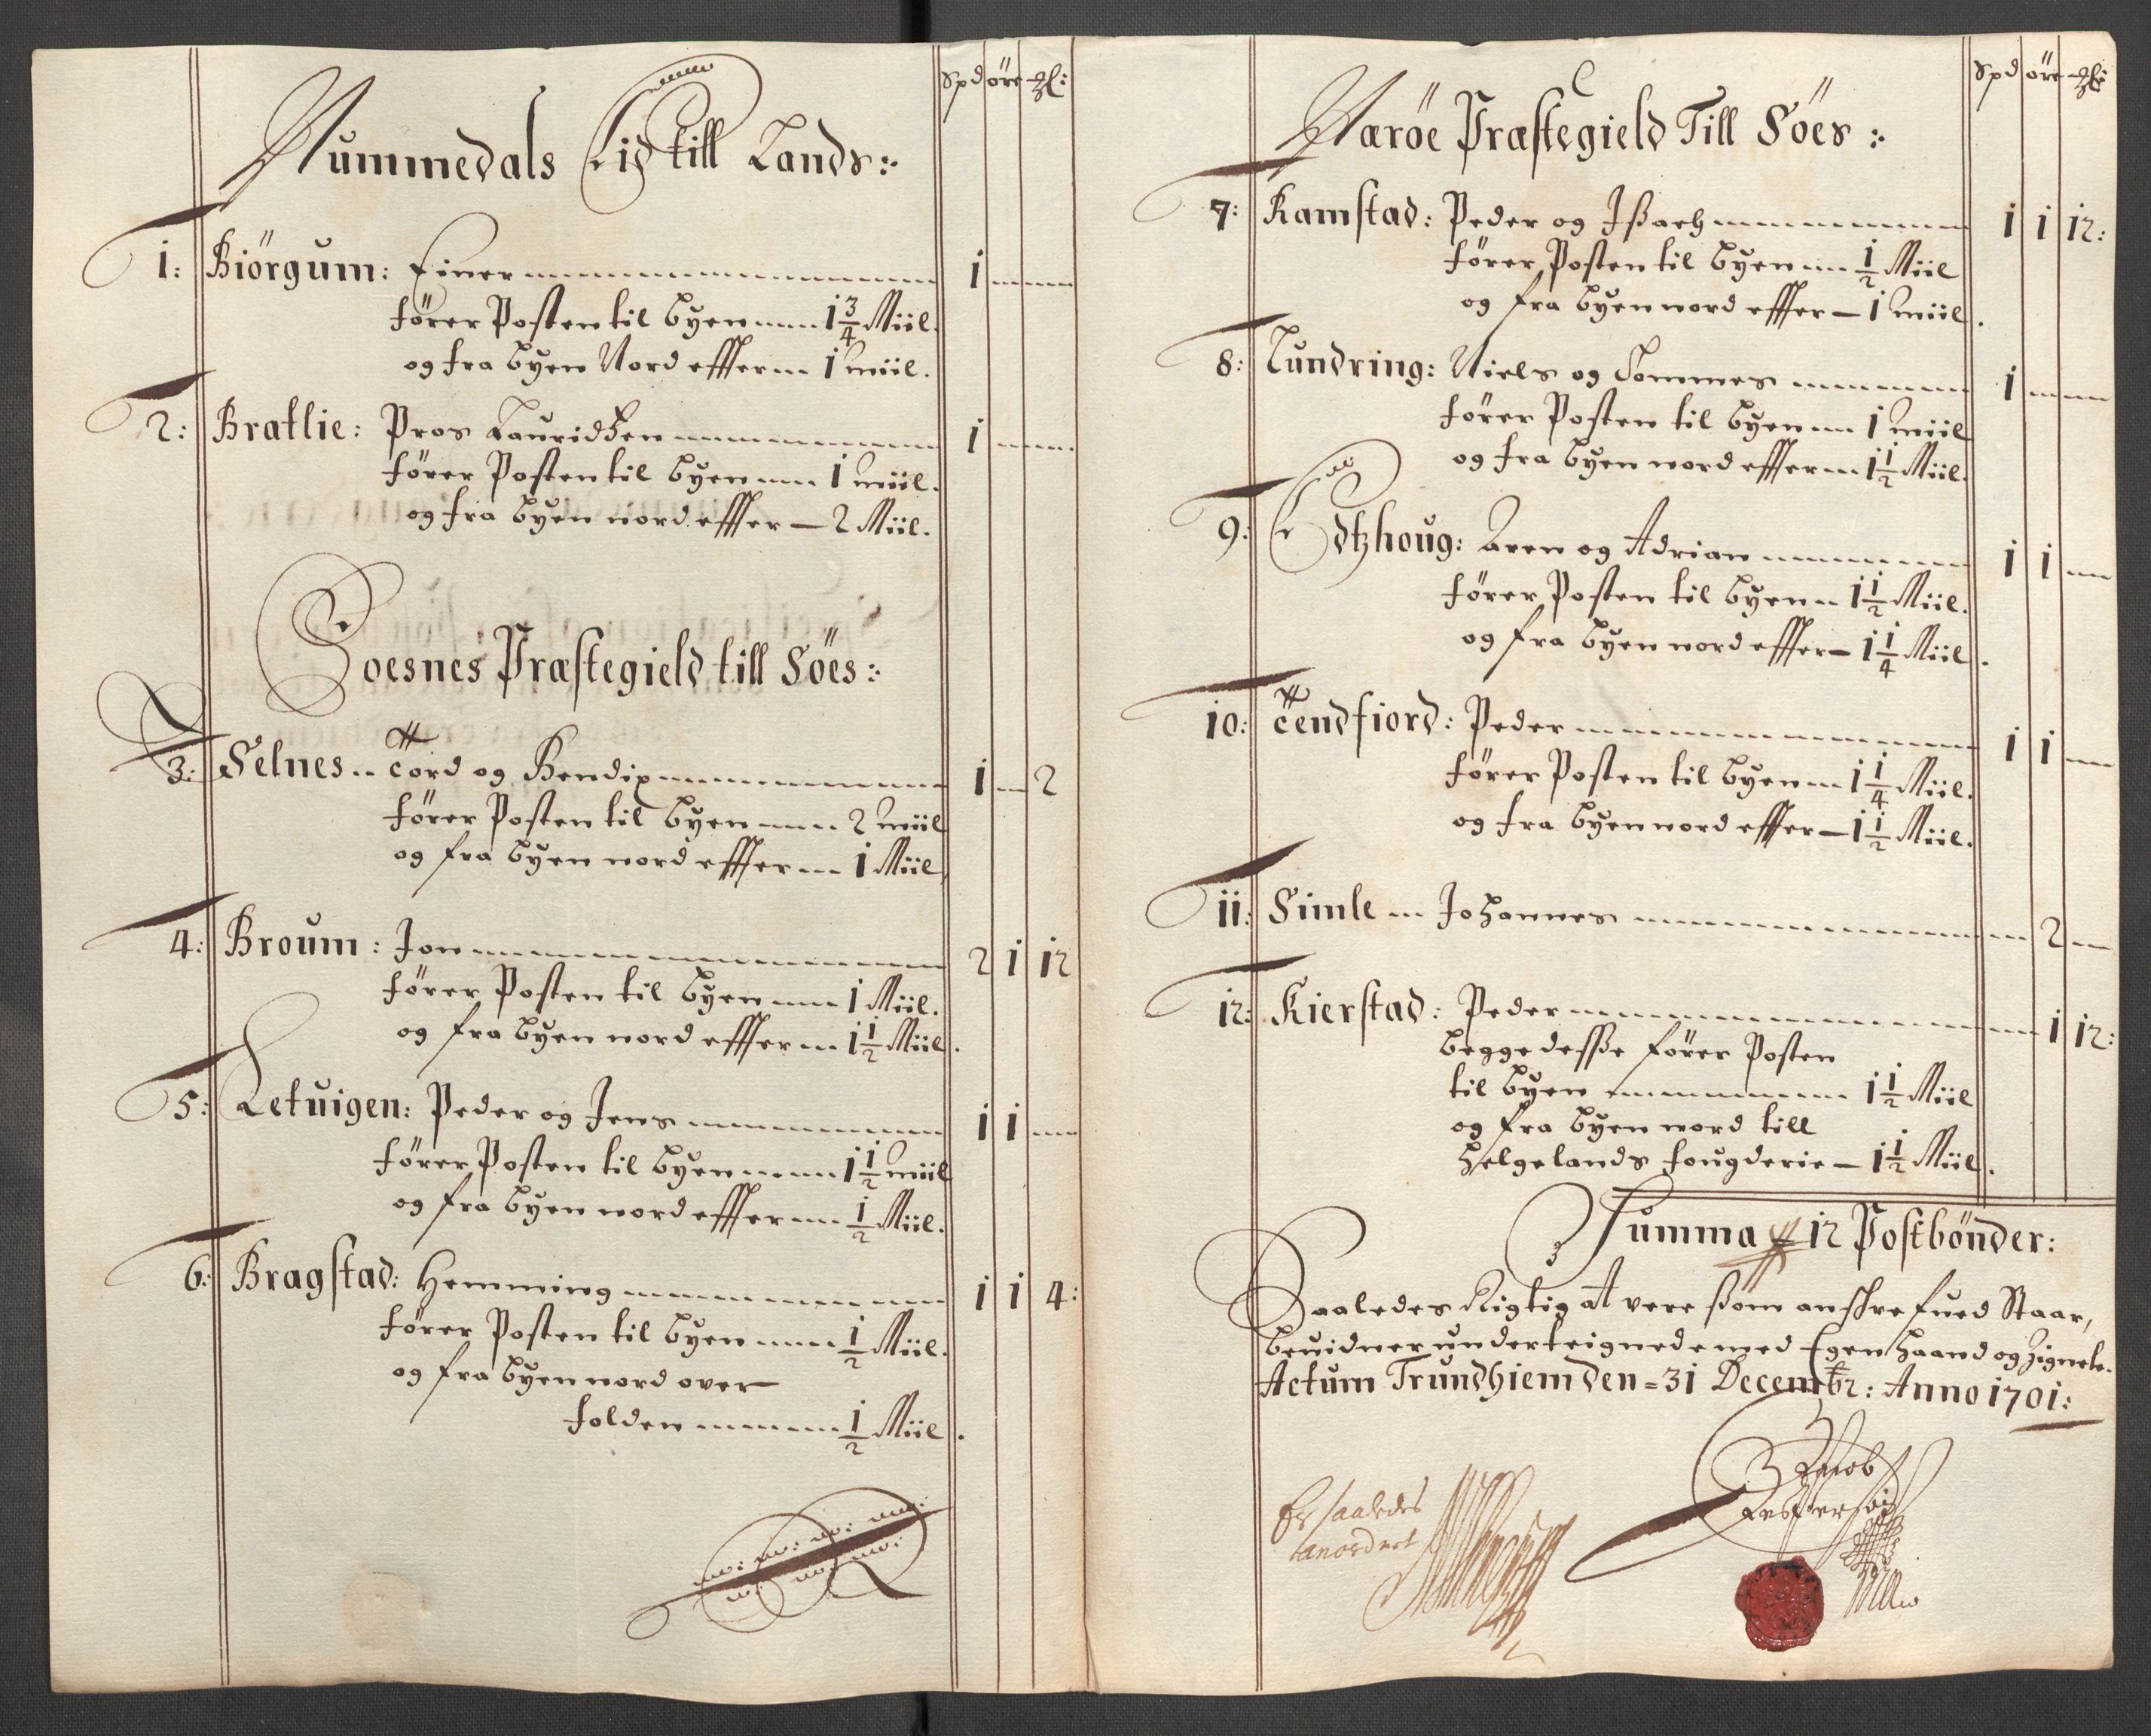 Spd öre ℔:
Nummedals Eid till Lands:
1: Biörgum: Einer 1
fører Posten til Byen 1 3/4 Miil.
og fra Byen Nord effter 1 miil.
2: Bratlie: Pros Lauridßen 1
fører Posten til Byen 1 miil.
og fra Byen nord effter 2 Miil.
Foesnes Præstegield till Söes:
3: Selnes Tord og Bendix 1 2
fører Posten til Byen 2 miil
og fra Byen nord effter 1 Miil
4: Broum: Jon 2 1 12
fører Posten til Byen 1 Miil.
og fra Byen nord effter 1 1/2 Miil.
5: Letuigen: Peder og Jens 1 1
fører Posten til Byen 1 1/2 miil
og fra Byen nord effter 1/2 Miil.
6: Bragstad: Hemming 1 1 4:
fører Posten til Byen 1/2 Miil.
og fra Byen nord over
folden 1/2 Miil.
Spd öre ℔:
Naröe Præstegield Till Söes:
7: Ramstad: Peder og Ißach 1 1 12:
fører Posten til Byen 1/2 Miil
og fra Byen nord effter 1 miil.
8: Lundring: Niels og Tommes 1
fører Posten til Byen 1 miil
og fra Byen nord effter 1 1/2 Miil.
9: Edtzhoug: Aren og Adrian 1 1
fører Posten til Byen 1 1/2 Miil.
og fra Byen nord effter 1 1/4 Miil.
10: Tendfiord: Peder 1 1
fører Posten til Byen 1 1/4 Miil.
og fra Byen nord effter 1 1/2 Miil.
11: Simle Johannes 2
12: Kierstad: Peder 1 12:
begge desße fører Posten
til Byen 1 1/2 Miil
og fra Byen nord till
Helgelands fougderie 1 1/2 Miil.
Summa 12 Postbönder:
Saaledes Rigtig at vere ßom anschrefued Staar,
beuidner underteignede med Egen haand og Zignete.
Actum Trundhiem den 31 Decembr: Anno 1701:
Er saaledes
anordnet
Jacob